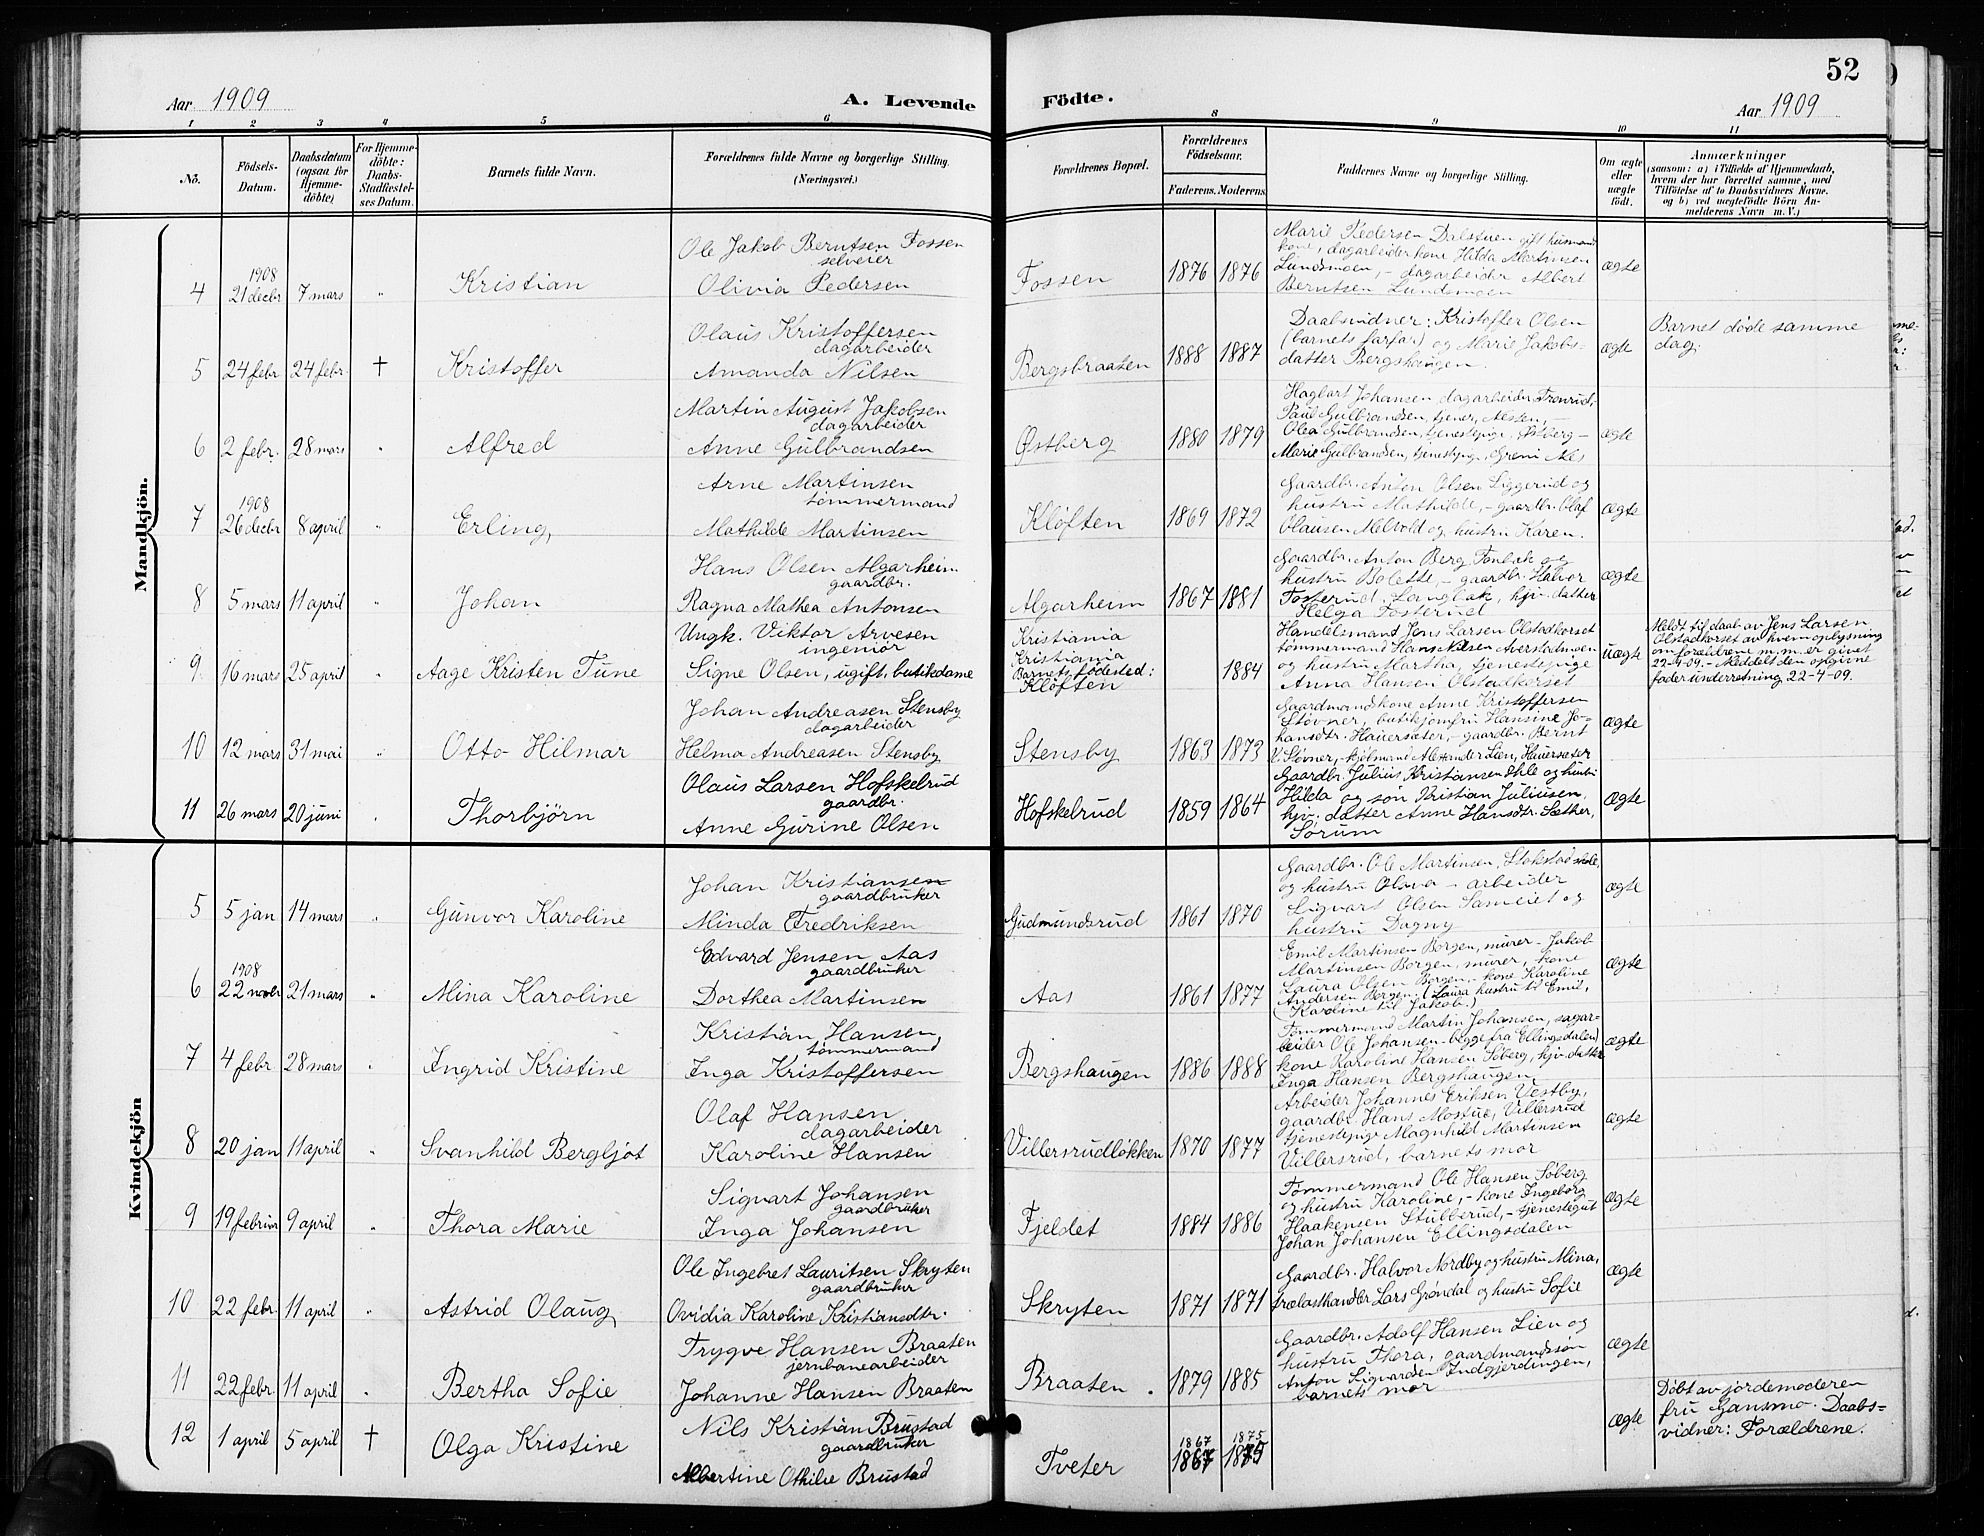 52
Aar 1909
A. Levende
Födte.
Aar 1909
1 2 3 4 5 6 8 9 10 11
No.
Födsels-Datum.
Daabsdatum (ogsaa for Hjemme-döbte)
For Hjemme-döbte: Daabs-Stadfæstel-ses Datum.
Barnets fulde Navn.
Forældrenes fulde Navne og borgerlige Stilling.
(Næringsvei.)
Forældrenes Bopæl.
Forældrenes Födselsaar.
Faderens. Moderens.
Faddernes Navne og borgerlige Stilling.
Om ægte eller uægte födt.
Anmærkninger
(saasom: a) i Tilfælde af Hjemmedaab,
hvem der har forrettet samme, med
Tilföielse af to Daabsvidners Navne.
og b) ved uægtefödte Börn An-
melderens Navn m. V.)
Mandkjön.
4 1908 21 decbr 7 mars " Kristian
Ole Jakob Berntsen Fossen
selveier
Olivia Pedersen
Fossen 1876 1876
Marit Pedersen Dalstuen gift husmand
kone, dagarbeider kone Hilda Martinsen
Lundsmoen, - dagarbeider Albert
Berntsen Lundsmoen
ægte
5 24 febr 24 febr. † Kristoffer
Olaus Kristoffersen
dagarbeider
Amanda Nilsen
Bergsbraaten 1888 1887
Daabsvidner: Kristoffer Olsen
(barnets farfar) og Marie Jakobs-
datter Bergshaugen.
ægte
Barnet døde samme
dag.
6 2 febr. 28 mars " Alfred
Martin August Jakobsen
dagarbeider
Anne Gulbrandsen
Østberg 1880 1879
Hagbart Johansen dagarbeider, Trønrud,
Paul Gulbrandsen, tjener,
Olea Gulbrandsen, tjenestepige, Østberg -
Marie Gulbrandsen, tjenestepige,
ægte
7 1908 26 decbr 8 april " Erling,
Arne Martinsen
tømmermand
Mathilde Martinsen
Kløften 1869 1872
Gaardbr. Anton Olsen Liggerud og
hustru Mathilde, - gaardbr. Olaf
Olausen Melvold og hustru Karen.
ægte
8 5 mars 11 april " Johan
Hans Olsen Algarheim
gaardbr.
Ragna Mathea Antonsen
Algarheim 1867 1881
Gaardbr. Anton Berg Fonbæk og
hustru Bolette, - gaardbr. Halvor
Fosterud, Langbak, hjv. datter
Helga Fosterud
ægte
9. 16 mars 25 april " Aage Kristen Tune
Ungk. Viktor Arvesen
ingeniør
Signe Olsen, ugift, butikdame
Kristiania
Kristiania
Barnets fødested:
Kløften
1884
Handelsmand Jens Larsen Olstadkorset
tømmermand Hans Nilsen Averstadmoen
og hustru Martha, tjenestepige
Anna Hansen Olstadkorset
uægte
Meldt til daab av Jens Larsen
Olstadkorset av hvem oplysning
om forældrene m.m. er givet
22-4-09. - Meddelt den opgivne
fader underretning 22-4-09.
10 12 mars 31 mai " Otto Hilmar
Johan Andreasen Stensby
dagarbeider
Helma Andreasen Stensby
Stensby 1863 1873
Gaardmandskone Anne Kristoffersen
Støvner, butikjomfru Hansine Jo-
hansdtr. Hauersæter, - gaardbr. Bernt
Støvner, - Alexander Lien, Hauersæter
ægte
11 26 mars 20 juni " Thorbjörn
Olaus Larsen Hofskelrud
gaardbr.
Anne Gurine Olsen
Hofskelrud 1859 1864
Gaardbr. Julius Kristiansen Ihle og hustru
Hilda og søn Kristian Juliusen,
hjv. datter Anne Hansdtr. Sæther,
Sørum
ægte
Kvindekjön
5 5 jan 14 mars " Gunvor Karoline
Johan Kristiansen
gaardbruker
Minda Fredriksen
Gudmundsrud 1861 1870
Gaardbr. Ole Martinsen, Stokstad
og hustru Olava - arbeider
Sigvart Olsen Sameiet og
hustru Dagny
ægte
6 1908 22 novbr 21 mars " Mina Karoline
Edvard Jensen Aas
gaardbruker
Dorthea Martinsen
Aas 1861 1877
Emil Martinsen Borgen, murer - Jakob
Martinsen Borgen, murer, kone
Laura Olsen Borgen, - kone Karoline
Andersen Borgen. (Laura hustru til Emil,
Karoline til Jakob.)
ægte
7 4 febr 28 mars " Ingrid Kristine
Kristian Hansen
tømmermand
Inga Kristoffersen
Bergshaugen 1886 1888
Tømmermand Martin Johansen, sagar-
beider Ole Johansen - begge fra Ellingsdalen,
kone Karoline Hansen Søberg, hjv. datter
Inga Hansen Bergshaugen
ægte
8 20 jan 11 april " Svanhild Bergljot
Olaf Hansen
dagarbeider
Karoline Hansen
Villersrudløkken 1870 1877
Arbeider Johannes Eriksen Vestby,
gaardbr. Hans Mostue, Villersrud
tjenestepige Magnhild Martinsen
Villersrud, barnets mor
ægte
9 19 februar 9 april " Thora Marie
Sigvart Johansen
gaardbruker
Inga Johansen
Fjeldet 1884 1886
Tømmermand Ole Hansen Søberg
og hustru Karoline, - kone Ingeborg
Haakensen Stubberud, - tjenestegut
Johan Johansen Ellingsdalen
ægte
10 22 febr. 11 april " Astrid Olaug,
Ole Ingebret Lauritsen Skryten
gaardbruker
Ovidia Karoline Kristiansdtr.
Skryten 1871 1871
Gaardbr. Halvor Nordby og hustru Mina,
trælasthandler Lars Grøndal og hustru Sofie
ægte
11 22 febr. 11 april " Bertha Sofie
Trygve Hansen Braaten
jernbanearbeider
Johanne Hansen Braaten
Braaten. 1879 1885
Gaardbr. Adolf Hansen Lien og
hustru Thora, gaardmandssøn
Anton Sigvardsen Indgjerdingen,
barnets mor
ægte
12 1 april 5 april † Olga Kristine
Nils Kristian Brustad
gaardbruker
Albertine Othilie Brustad
Tveter 1867 1867 1875 1875
ægte
Døbt av jordemoderen
fru Gansmo. Daabs-
vidner: Forældrene.